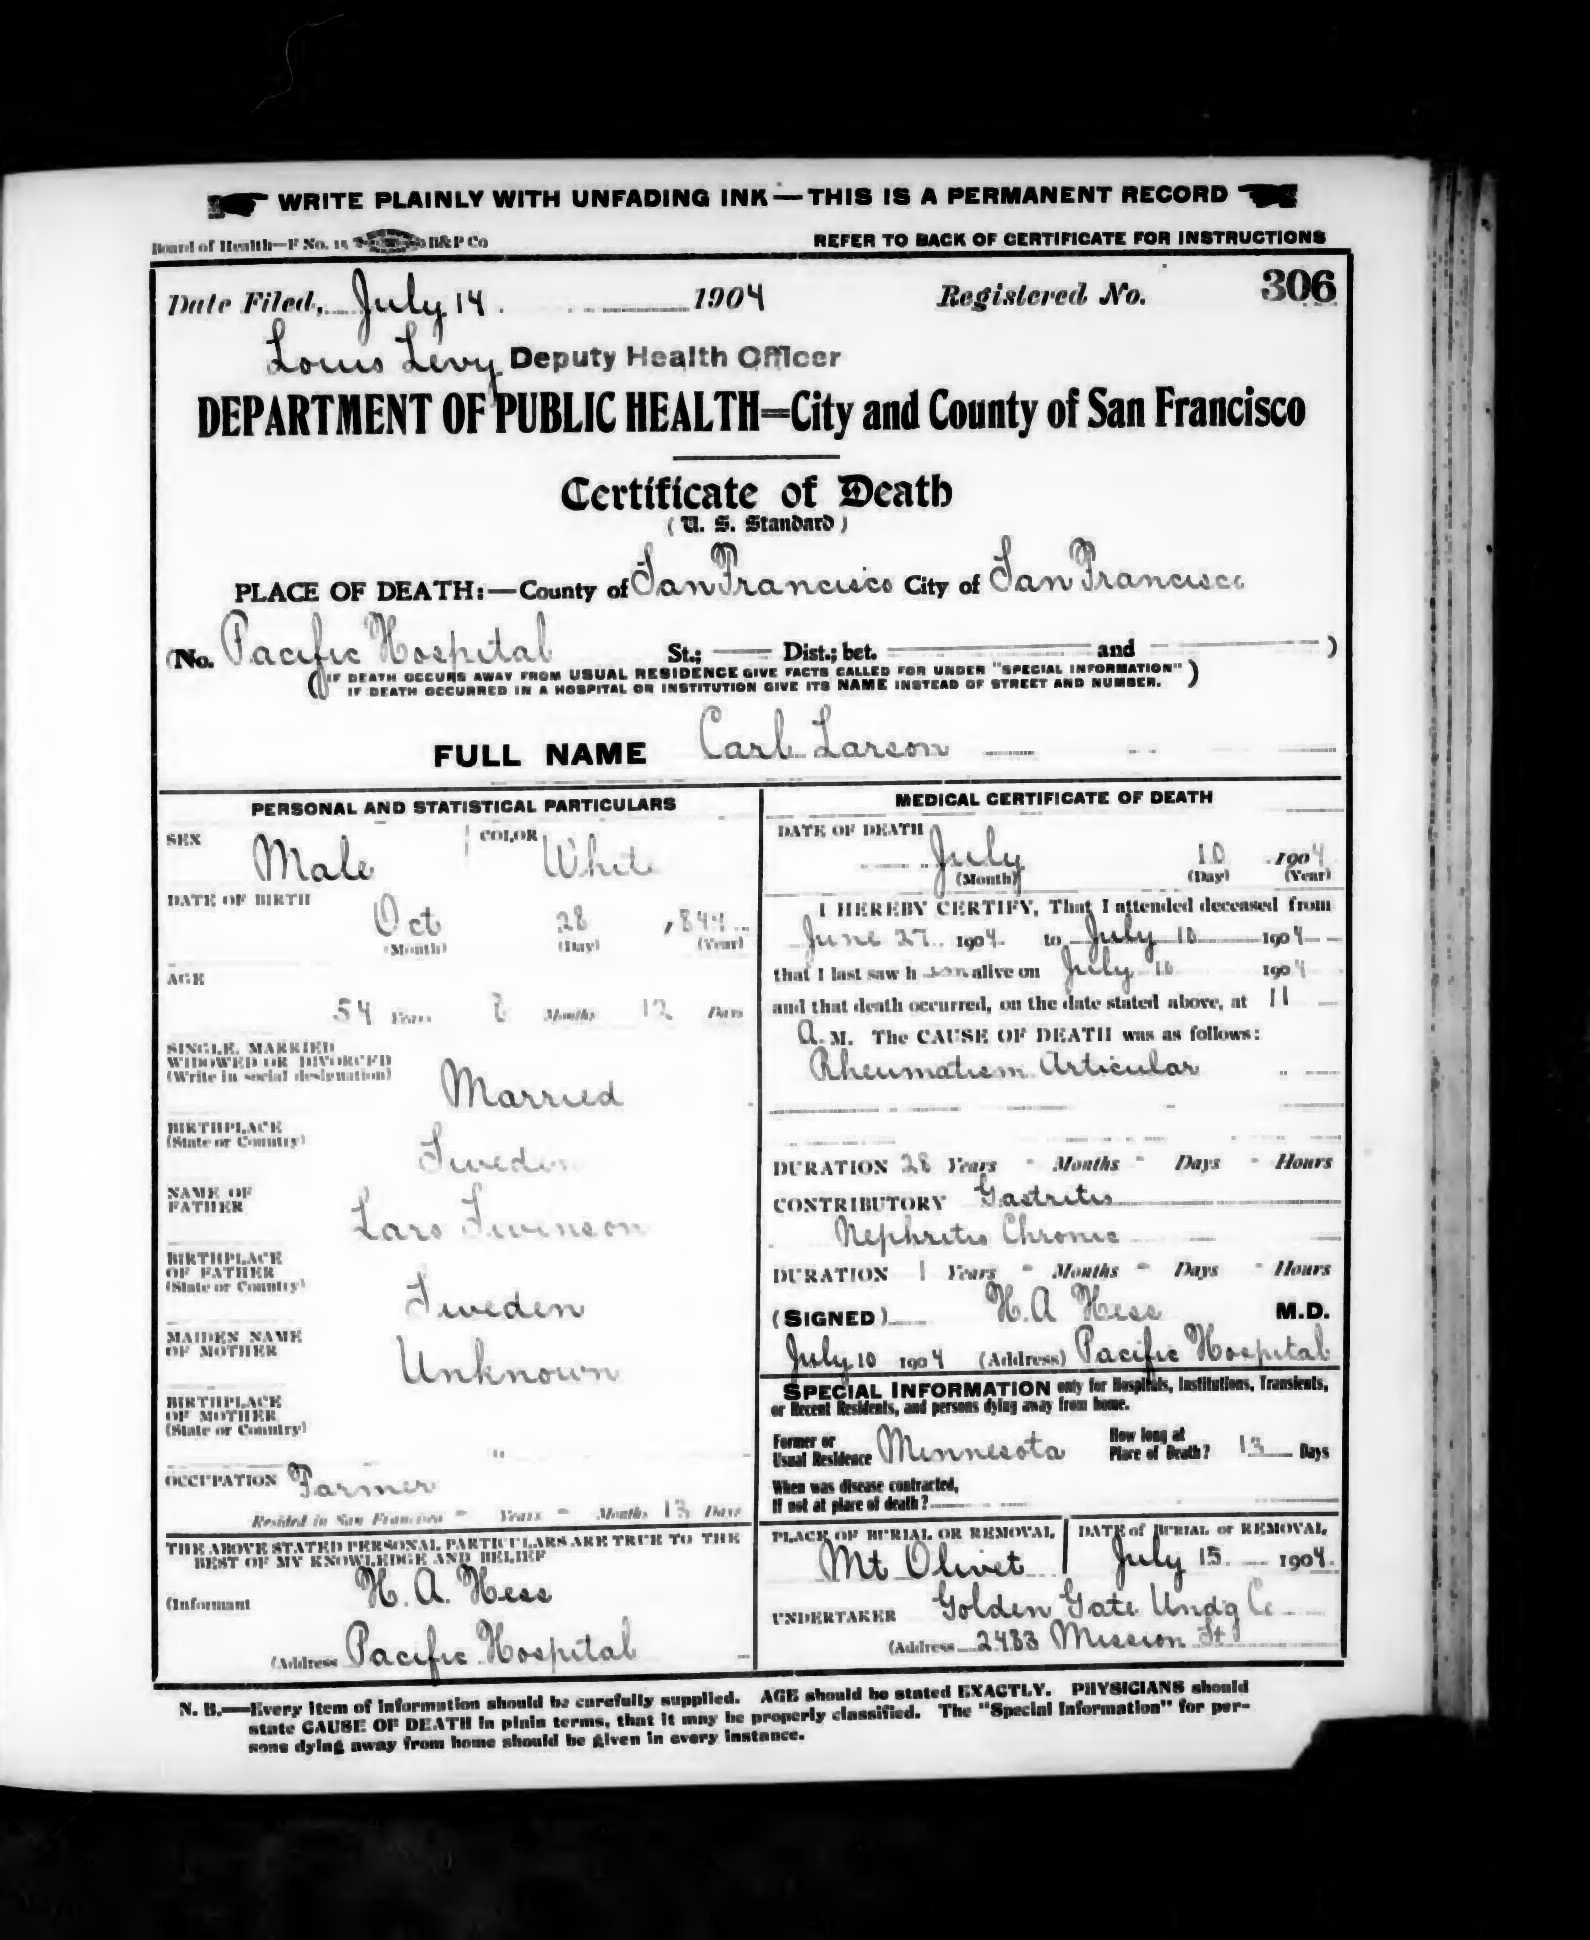 WRITE PLAINLY WITH UNFADING INK — THIS IS A PERMANENT RECORD
Board of Health—F No. 15 H&P Co
REFER TO BACK OF CERTIFICATE FOR INSTRUCTIONS
Date Filed, July 14. 1904 Registered No. 306
Louis Levy Deputy Health Officer
DEPARTMENT OF PUBLIC HEALTH=City and County of San Francisco
Certificate of Death
(U. S. Standard)
PLACE OF DEATH:—County of San Francisco City of San Francisco
(No. Pacific Hospital St.; Dist.; bet. and )
(IF DEATH OCCURS AWAY FROM USUAL RESIDENCE GIVE FACTS CALLED FOR UNDER "SPECIAL INFORMATION"
IF DEATH OCCURRED IN A HOSPITAL OR INSTITUTION GIVE ITS NAME INSTEAD OF STREET AND NUMBER.)
FULL NAME Carl Larson
PERSONAL AND STATISTICAL PARTICULARS
SEX Male COLOR White
DATE OF BIRTH
Oct 28
(Month) (Day) (Year)
AGE
54 Years 8 Months 12 Days
SINGLE, MARRIED
WIDOWED OR DIVORCED
(Write in social designation)
Married
BIRTHPLACE
(State or Country)
Sweden
NAME OF
FATHER
Lars Swenson
BIRTHPLACE
OF FATHER
(State or Country)
Sweden
MAIDEN NAME
OF MOTHER
Unknown
BIRTHPLACE
OF MOTHER
(State or Country)
"
OCCUPATION Farmer
Resided in San Francisco - Years - Months 13 Days
THE ABOVE STATED PERSONAL PARTICULARS ARE TRUE TO THE
BEST OF MY KNOWLEDGE AND BELIEF
(Informant H. A. Hess
(Address Pacific Hospital
MEDICAL CERTIFICATE OF DEATH
DATE OF DEATH
July 10 1904
(Month) (Day) (Year)
I HEREBY CERTIFY, That I attended deceased from
June 27. 1904 to July 10 1904
that I last saw h alive on July 10 1904
and that death occurred, on the date stated above, at 11
A. M. The CAUSE OF DEATH was as follows:
Rheumatism Articular
DURATION 28 Years - Months - Days - Hours
CONTRIBUTORY Gastritis
Nephritis Chronic
DURATION 1 Years - Months - Days - Hours
(SIGNED) H. A Hess M.D.
July 10 1904 (Address) Pacific Hospital
SPECIAL INFORMATION only for Hospitals, Institutions, Transients,
or Recent Residents, and persons dying away from home.
Former or
Usual Residence Minnesota
How long at
Place of Death? 13 Days
When was disease contracted,
If not at place of death?
PLACE OF BURIAL OR REMOVAL
Mt Olivet
DATE of BURIAL or REMOVAL
July 15. 1904.
UNDERTAKER Golden Gate Undg Co
(Address 2483 Mission St
N. B.—Every item of information should be carefully supplied. AGE should be stated EXACTLY. PHYSICIANS should
state CAUSE OF DEATH in plain terms, that it may be properly classified. The "Special Information" for per-
sons dying away from home should be given in every instance.